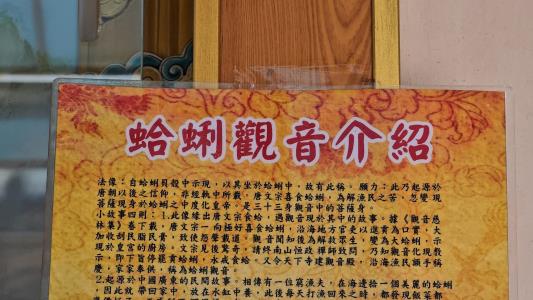 蛤蜊觀音介紹
法像：自蛤蜊貝殼中示現，以其坐於蛤蜊中，故有此稱，願力：此乃起源於
唐朝以後之信仰，非經軌中所載，唐文宗喜食蛤蜊，為解漁民之苦，忽變現
菩薩現身於蛤蜊之中度化皇帝，是三十三身觀音中的菩薩身。
小故事四則：1.此像緣出唐文宗食蛤，遇觀音現於其中的故事。據《觀音慈
林集》卷下載，唐文宗一向極好喜食蛤蜊，沿海地方官吏以進貢為口實，大
加收刮民脂民膏，致使怨聲載道，觀音聞知後為解救眾生，變為大蛤蜊，示
現於皇宮的廚房，文宗見後驚奇，請終南山恒政禪師致問，乃知觀音化現教
示，即下旨停罷貢蛤蜊，永戒食蛤，又令天下寺建觀音殿，沿海漁民額手稱
慶，家家奉供，稱為蛤蜊觀音。
2.起源於中國廣東的民間故事，相傳有一位窮漁夫，在海邊拾一個美麗的蛤蜊
，因此就帶回家中，放在水缸中養，此後每天打漁回來之時，都發現飯菜都